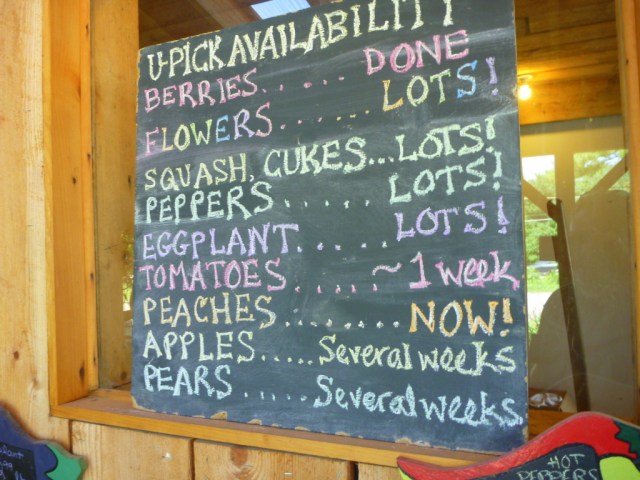 U-PICK AVAILABILITY
BERRIES..... DONE
FLOWERS...... LOTS!
SQUASH, CUKES...LOTS!
PEPPERS...... LOTS!
EGGPLANT..... LOTS!
TOMATOES..... ~1 week
PEACHES........NOW!
APPLES.....Several weeks
PEARS.....Several weeks
HOT
PEPPERS